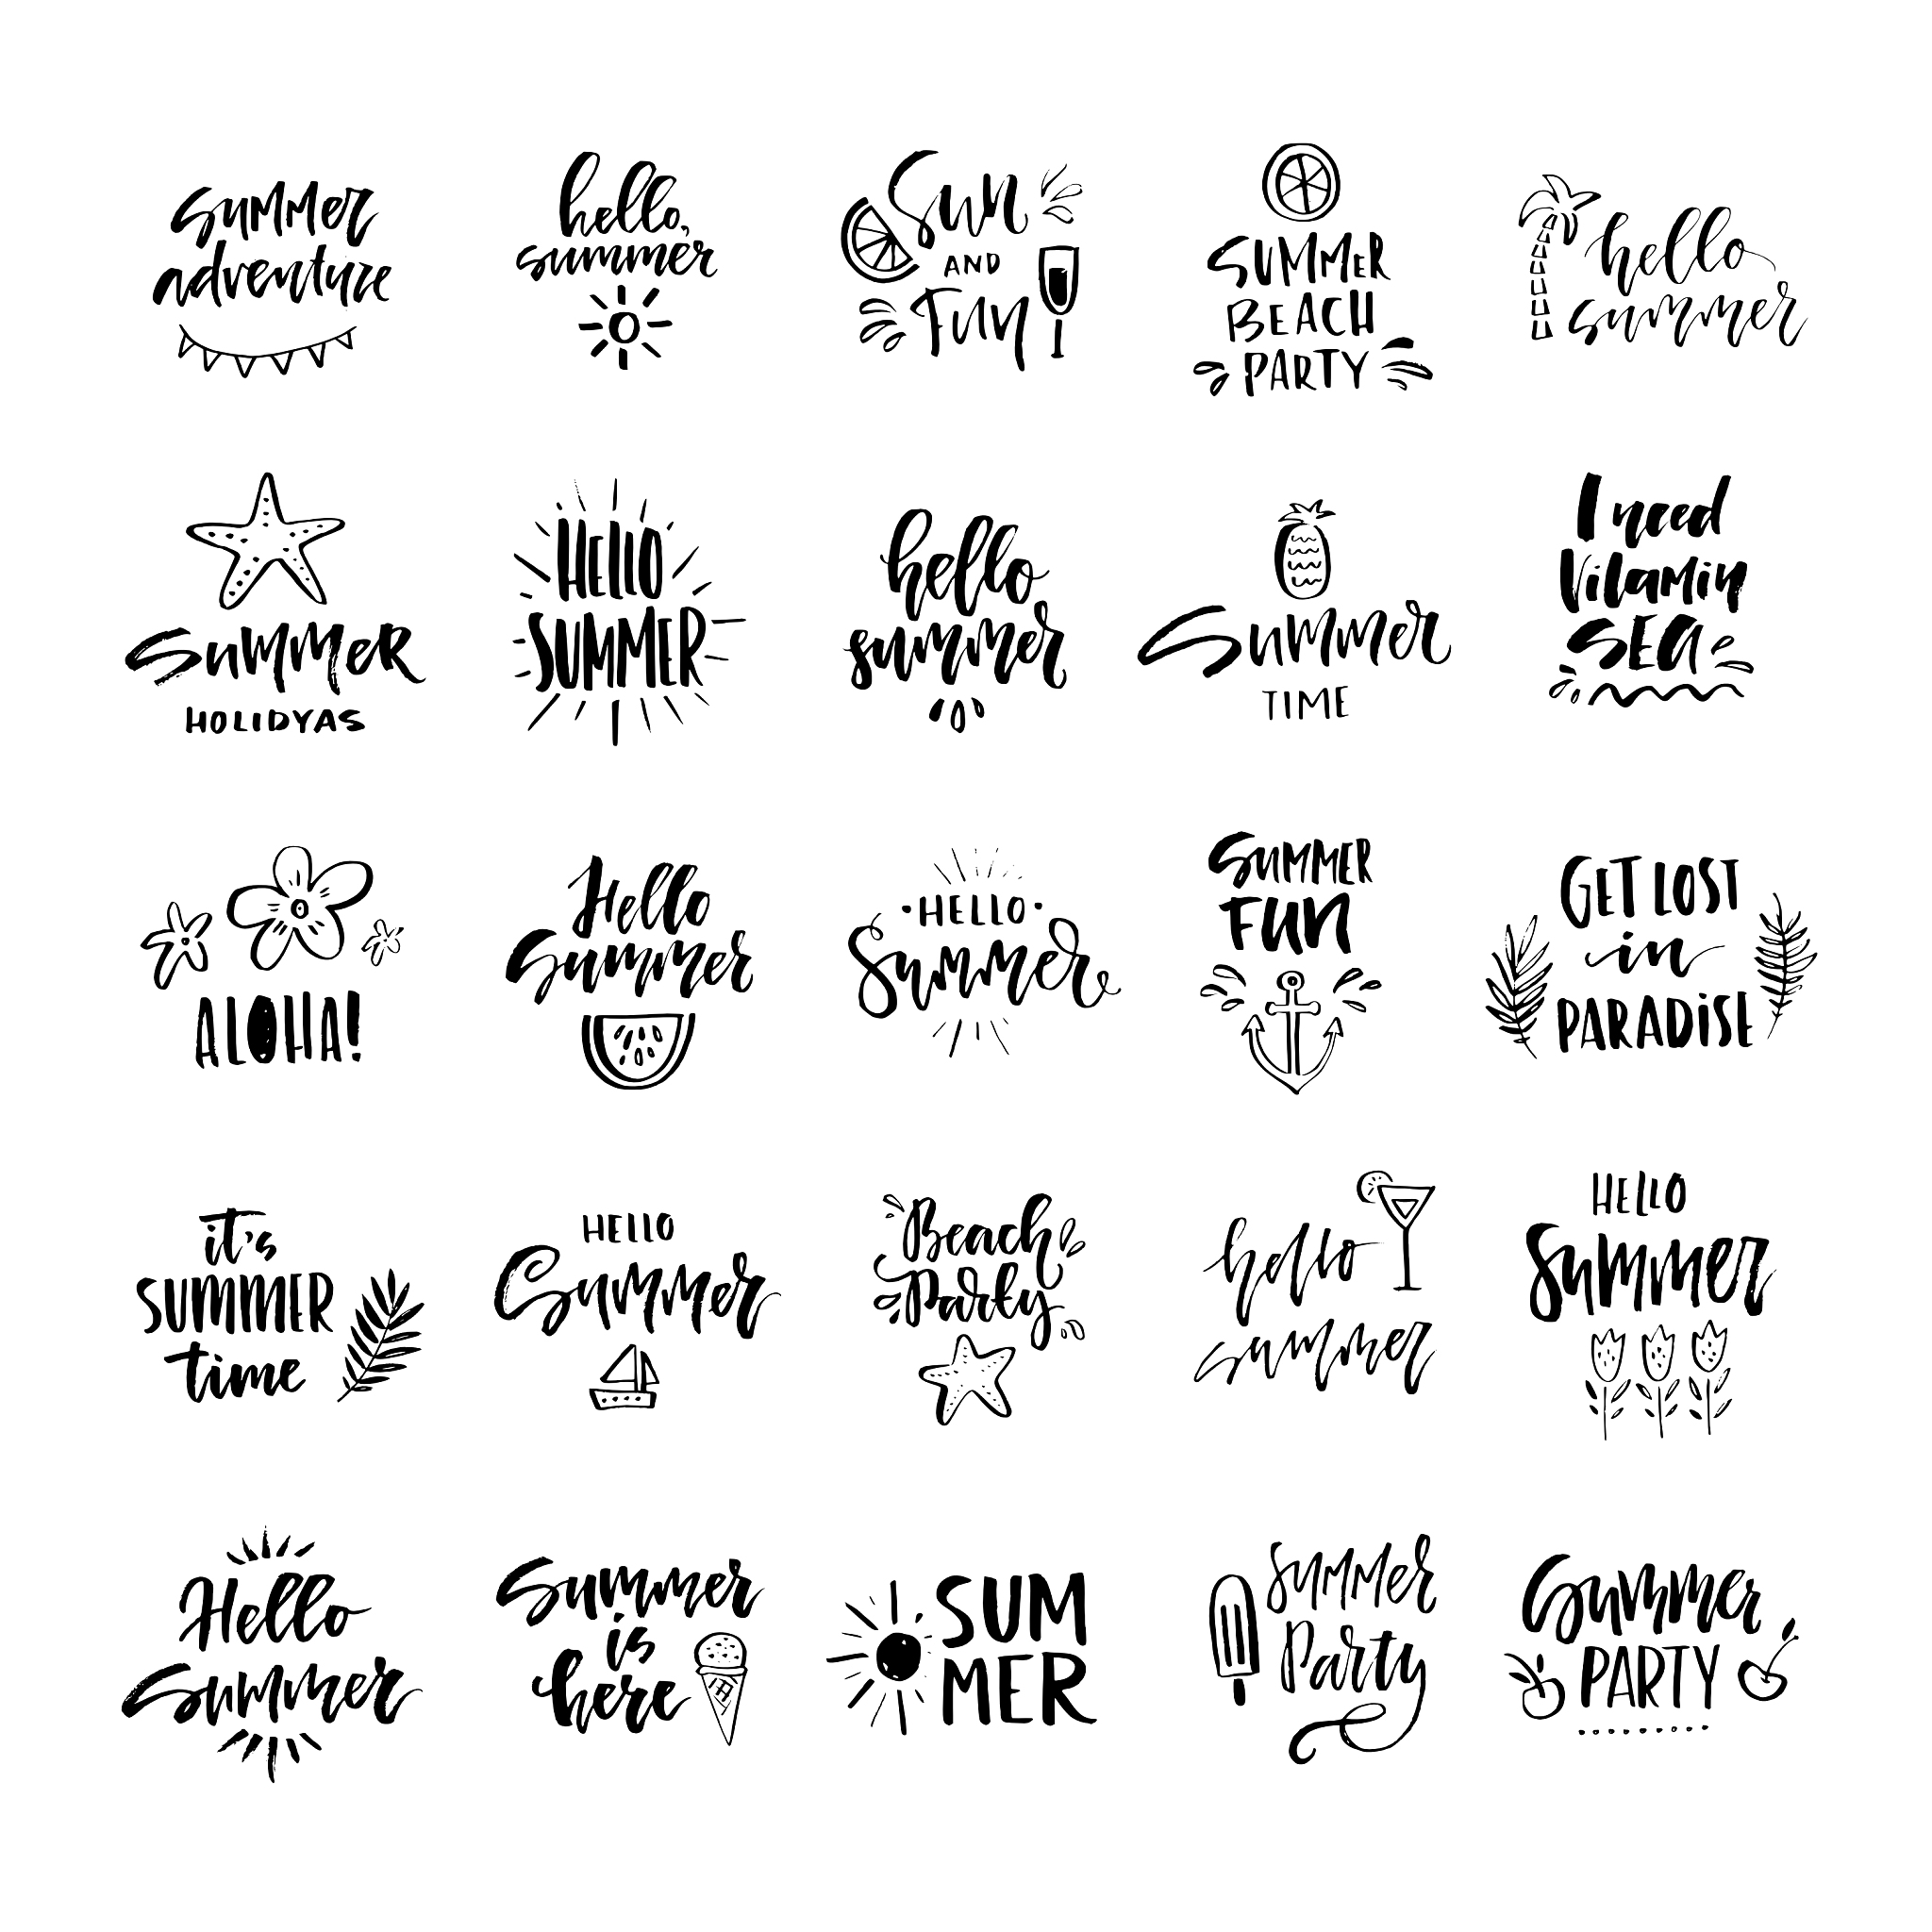 Summer
adventure
hello,
summer
Sun
AND
Fun
SUMMER
BEACH
PARTY
hello
summer
Summer
HOLIDYAS
HELLO
SUMMER
hello
summer
Summer
TIME
I need
Vitamin
SEA
ALOHA!
Hello
Summer
HELLO
Summer
SUMMER
FUN
GET LOST
in
PARADISE
it's
SUMMER
time
HELLO
Summer
Beach
Party
hello
summer
HELLO
Summer
Hello
Summer
Summer
is
here
SUM
MER
Summer
Party
Summer
PARTY